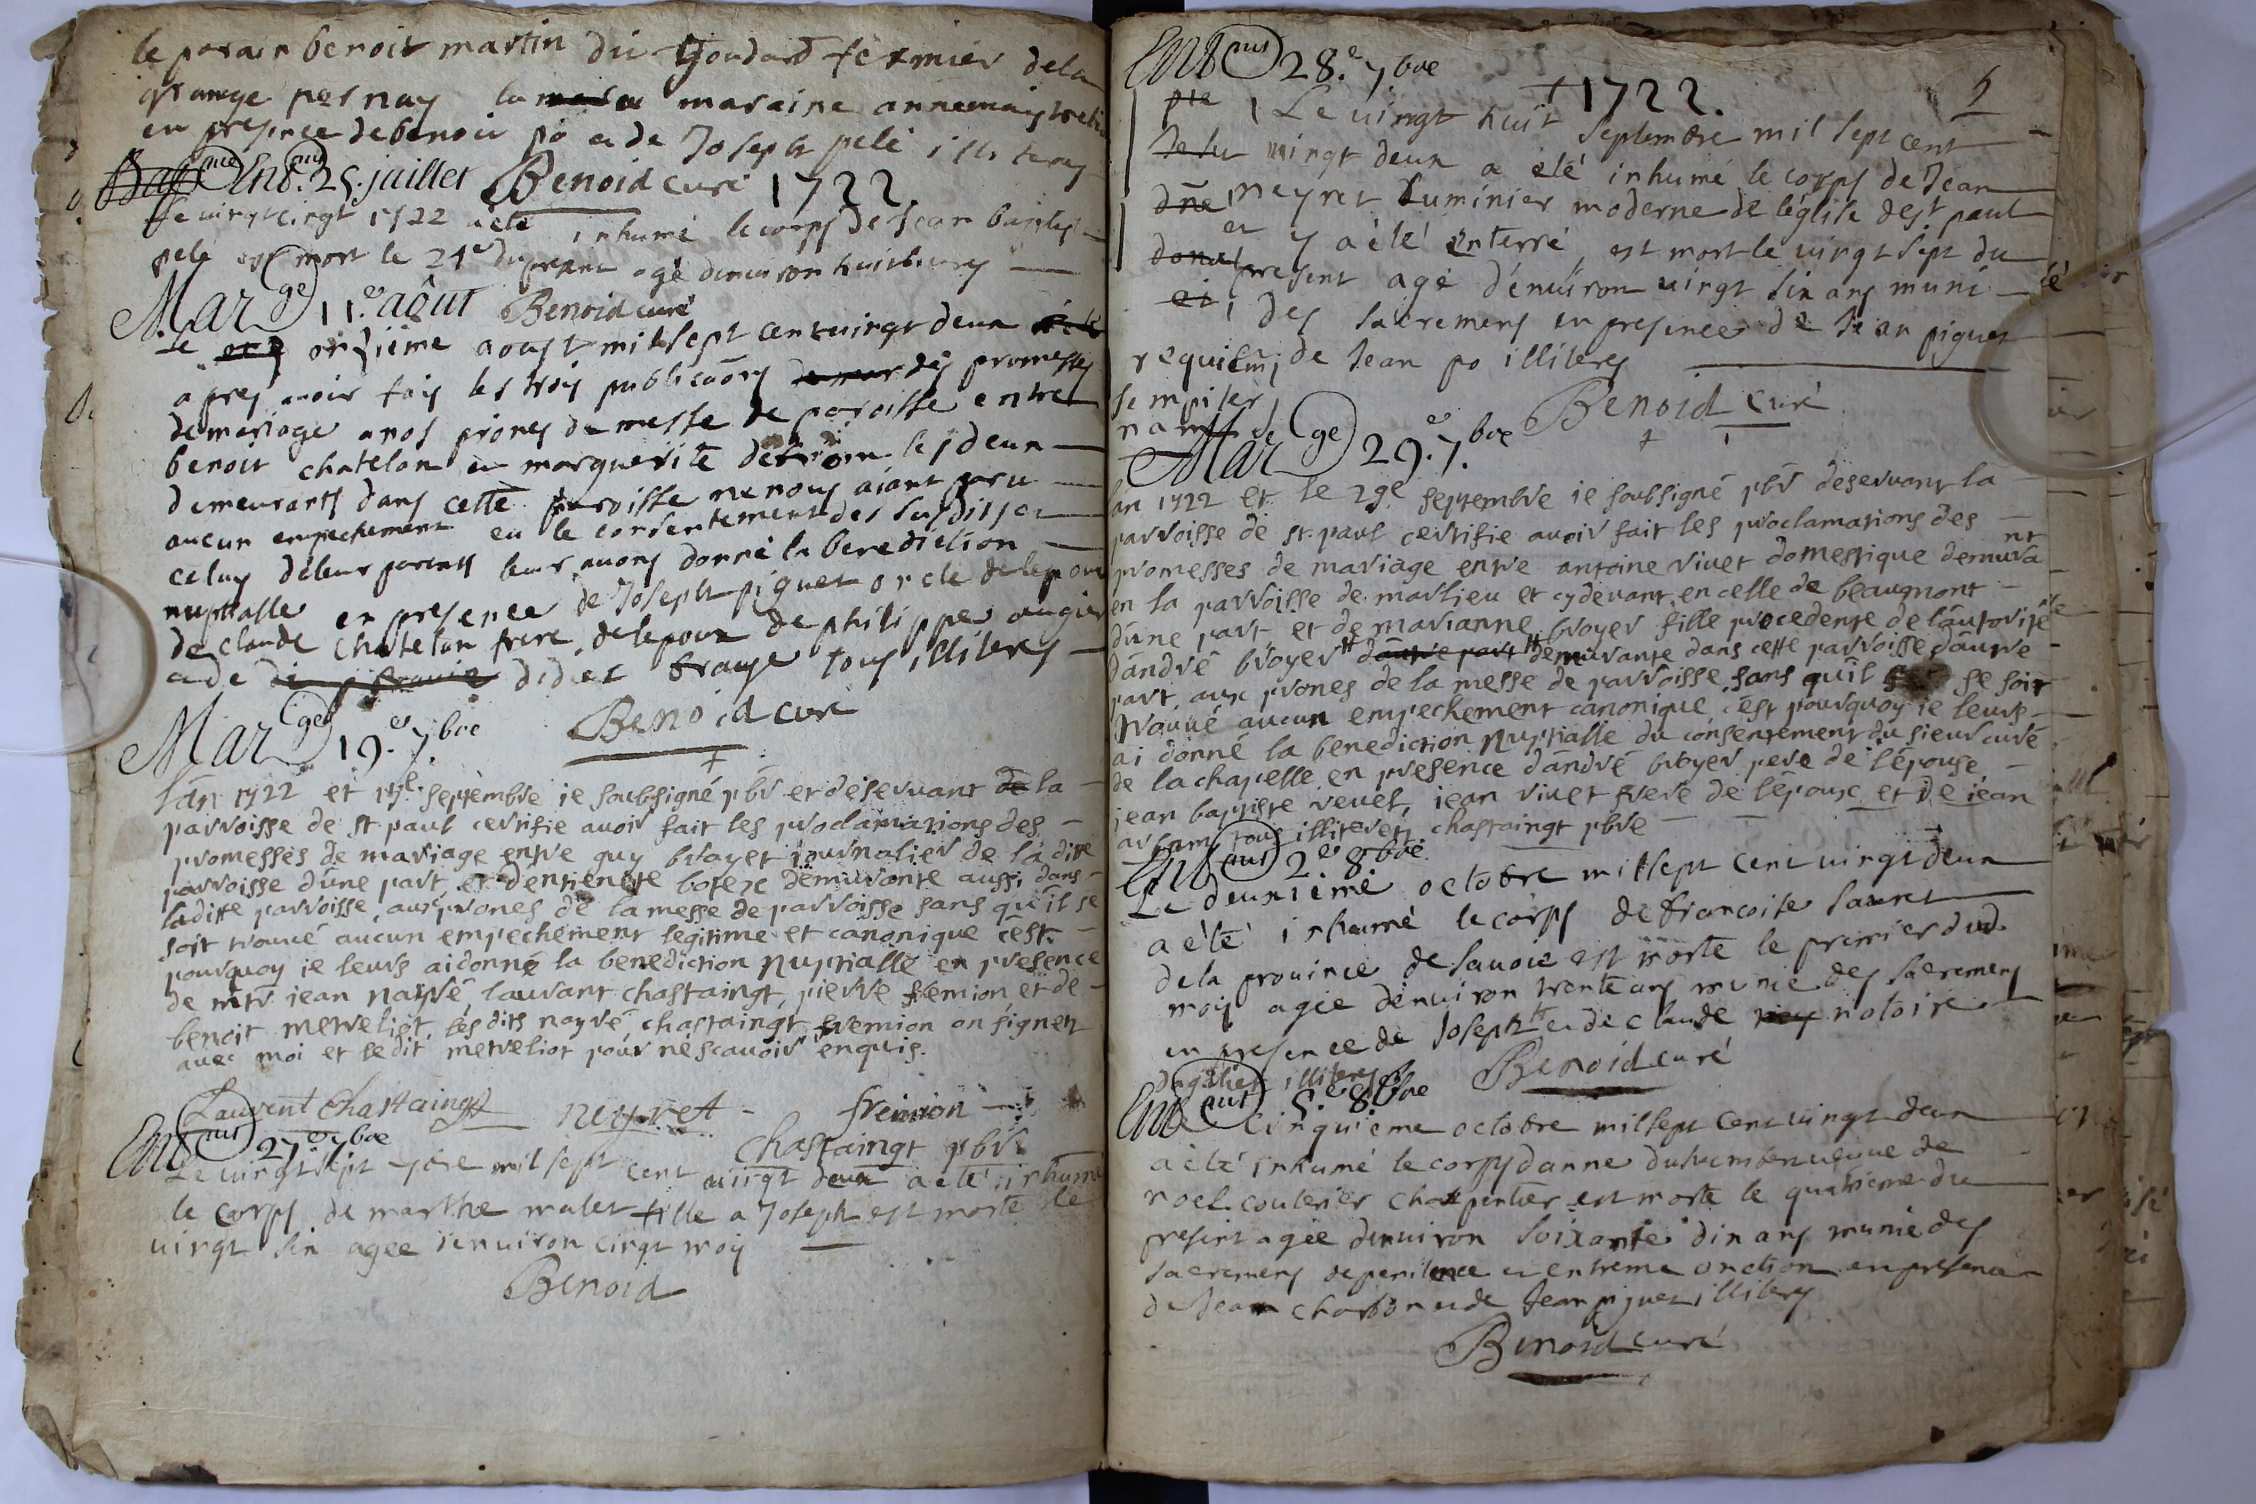 le parain benoit martin dit Goudard fermier dela
grange pernay la maraine annemay
en presence debenoit po et de Joseph pelé illiteres
Ent.nt 25. juillet Benoid curé 1722
le vingtcinqt 1722 a eté inhumé le corps de Jean baptiste
pelé est mort le 24e du present agé denuiron huit
Mar(ge) 11.e aôut Benoid curé
le onziéme aoust mil sept cent vingt deux
apres avoir fais les trois publicaõns des promesses
de mariage a nos prones de messe de paroisse entre
benoit chatelon et marguerite les deux
demeurants dans cette paroisse ne nous aiant paru
aucun empechement eu le consentement des susdits et
celuy de leur parents leur avons donné la benediction
nuptialle en presence de Joseph piguet oncle de lepoux
de claude chatelon frere de lepoux de philippe augier
et de didier tous illiteres
Mar(ge) 19.e 7.bre Benoid curé
l'an 1722 et 19e septembre ie soubsigné pbr et deservant de la
parroisse de st paul certifie avoir fait les proclamations des
promesses de mariage entre guy broyer journalier de la ditte
parroisse d'une part et d'entienette botere demeurante aussi dans
laditte parroisse, aux prones de la messe de parroisse sans qu'il se
soit trouvé aucun empechement legitime et canonique c'est
pourquoy ie leurs ai donné la benediction nuptialle en presence
de mtr jean nayré, laurant chastaingt, pierre fremion et de
benoit metveliot, lesdits nayré, chastaingt, fremion on signez
avec moi et ledit metveliot pour ne scavoir enquis.
Laurent Chastaingt neyret fremion
Chastaingt pbre
Ent.nt 27.e 7bre
Le vingt sept 7bre mil sept cent vingt deux a eté inhumé
le corps de marthe mulet fille a Joseph est morte le
vingt six agée denuiron cinqt moy
Benoid
Ent.nt 28.e 7bre
+ 1722. 5
Le vingt huit septembre mil sept cent
vingt deux a été inhumé le corps de Jean
neyret Luminier moderne de léglise de st paul
et y a été enterré, est mort le vingt sept du
present agé d'enuiron vingt six ans muni
des sacremens en presence de Jean piguet
requiem de Jean po illiteres
sempiter
nam
Benoid curé
Mar(ge) 29.e 7.bre
lan 1722 et le 29e septembre ie soubsigné pbr deservant la
parroisse de st paul certifie avoir fait les proclamations des
promesses de mariage entre antoine vivet domestique demeurant
en la parroisse de marlieu et cydevant en celle de beaumont
d'une part et de marianne broyer fille procedente de l'autorité
d'andré broyer d'autre part demeurante dans cette parroisse d'autre
part aux prones de la messe de parroisse sans quil se soit
trouvé aucun empechement canonique c'est pourquoy ie leurs
ai donné la benediction nuptialle du consentement du sieur curé
de lachapelle en presence d'andré broyer pere de l'épouse
jean baptiste jean vivet frere de l'époux et de jean
tous illiterez chastaingt pbre
Ent.nt 2.e 8.bre
Le deuxiéme octobre mil sept cent vingt deux
a été inhumé le corps de francoise
dela province de Savoie est morte le premier dud.
moy agée d'enuiron trente ans munie des sacremens
en presence de Joseph et de claude notoire
illiteres
Benoid curé
Ent.nt 5.e 8.bre
Le cinquieme octobre mil sept cent vingt deux
a été inhumé le corps danne veuve de
noel couterier charpentier est morte le quatrieme du
present agée denuiron soixante dix ans munie des
sacremens de penitence et extreme onction en presence
de Jean charbon et de Jean piguet illiteres
Benoid curé